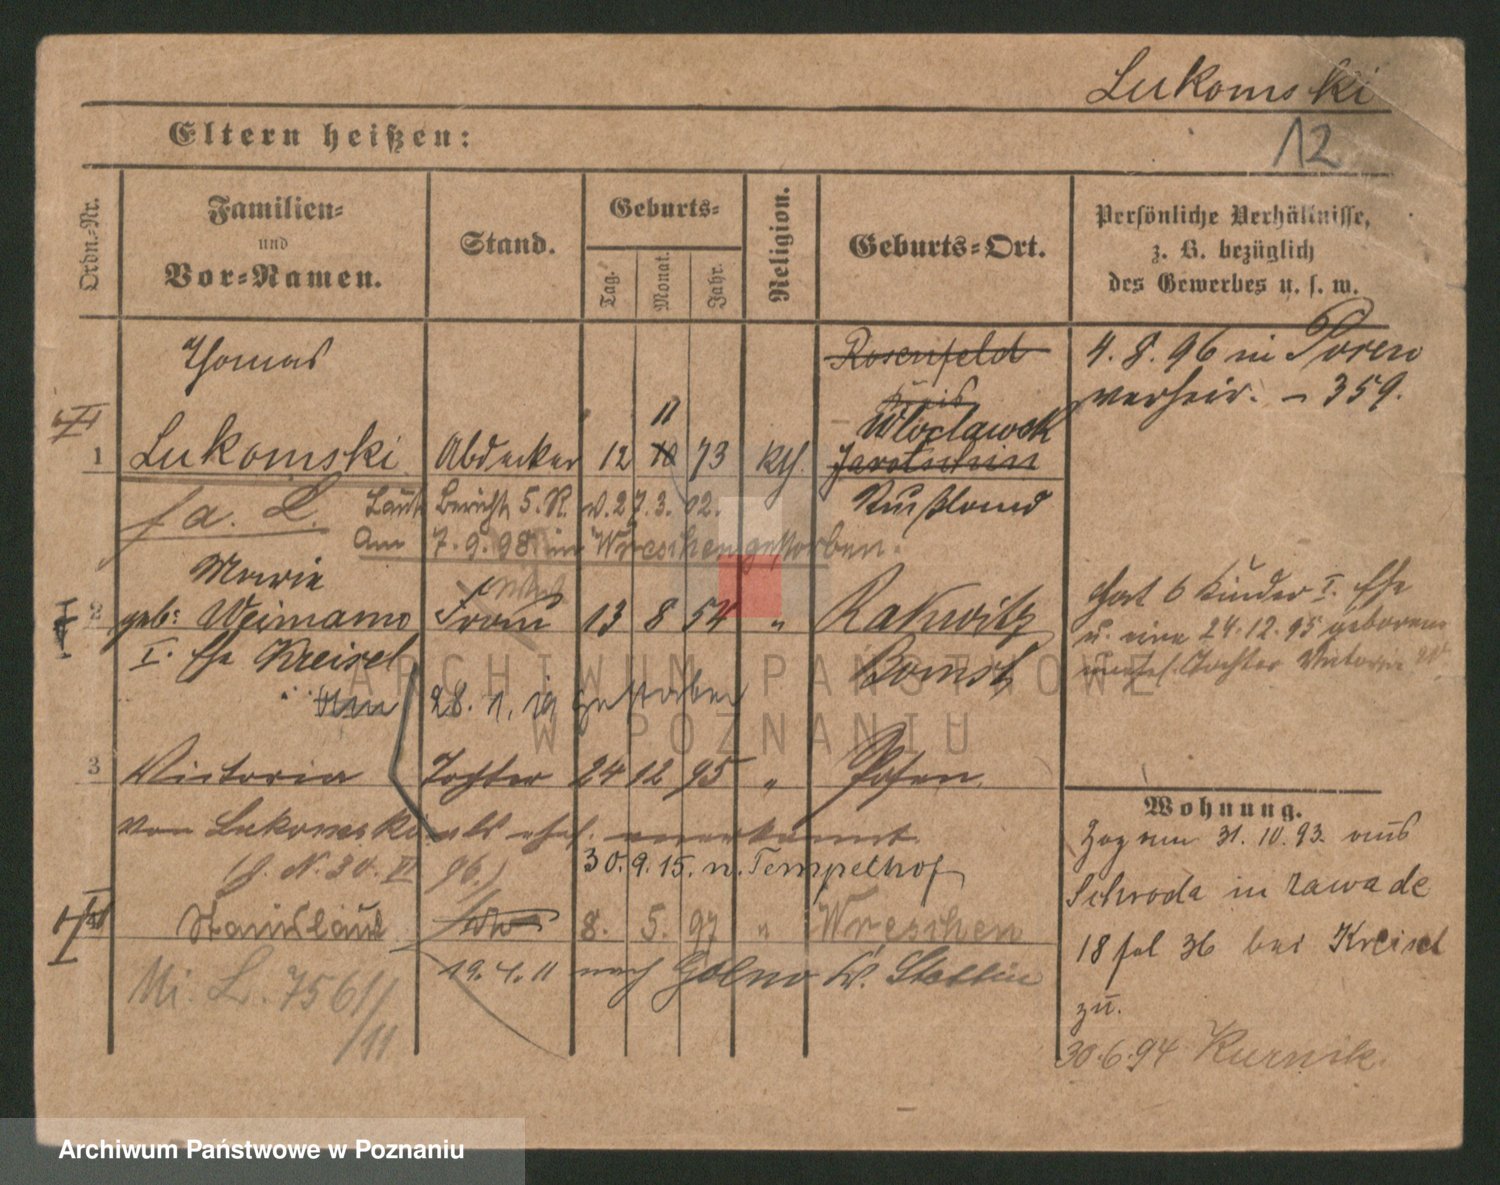 Lukomski
12
Eltern heißen:
Ordn.-Nr.
Familien-
und
Vor-Namen.
Stand.
Geburts-
Tag.
Monat.
Jahr.
Religion.
Geburts-Ort.
Persönliche Verhältnisse,
z. B. bezüglich
des Gewerbes u. s. w.
Thomas
Rosenfeld
Kreis
4. 8. 96 in Posen
verheir. – 359.
11
Wloclawek
1 Lukomski Abdecker 12 10 73 kth. Jarotschin
fa. L. Laut Bericht 5. R. v. 27.3.02. Rußland
Am 7.9.98 in Wreschen gestorben.
Marie
2 geb: Weimann Frau 13 8 54 " Rakwitz
I. Ehe Kreisel Bomst
Hat 6 Kinder I. Ehe
u. eine 24.12.95 geborene
unehel. Tochter Victoria
28. 1. 19 gestorben
3 Victoria Tochter 24 12 95 " Posen
von Lukomski als ehel. anerkannt.
96.) 30.9.15. n. Tempelhof
4 Stanislaus Sohn 8. 5. 97 " Wreschen
19.4.11 nach Golno Kr. Stettin
Mi. L. 7561/
/11
Wohnung.
Zog am 31.10.93. aus
Schroda in Zawade
18 fol 36 bei Kreisel
zu.
30.6.94 Kurnik.
ARCHIWUM PAŃSTWOWE
W POZNANIU
Archiwum Państwowe w Poznaniu